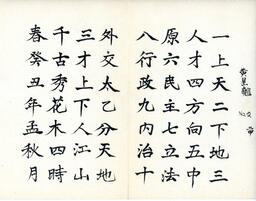 一上天二下地三
人才四方向五中
原六民主七立法
八行政九內治十
外交太乙分天地
三才上下人江山
千古秀花木四時
春癸丑年孟秋月